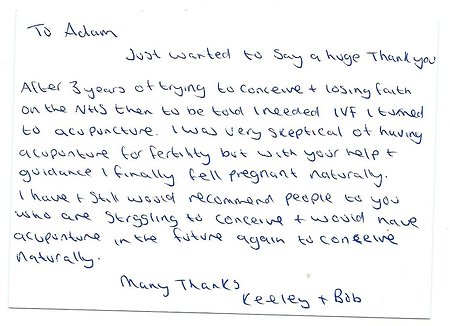 To Adam
Just wanted to say a huge Thank you
After 3 years of trying to conceive + losing faith
on the NHS then to be told I needed IVF I turned
to acupuncture. I was very skeptical of having
acupunture for fertility but with your help +
guidance I finally fell pregnant naturally.
I have + still would recommend people to you
who are strggling to conceive + would have
acupunture in the future again to conceive
naturally.
Many Thanks
Keeley + Bob